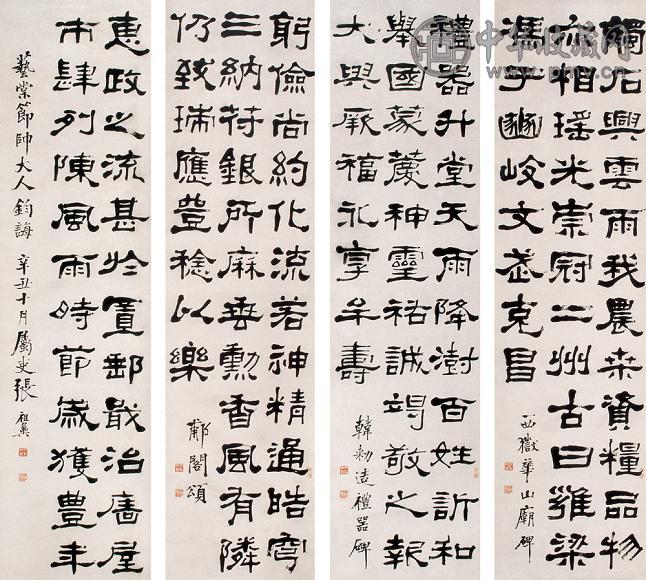 觸石興雲雨我農桒資糧品物
亦相瑶光崇冠二州古曰雍梁
馮于豳岐文武克昌
西嶽華山廟碑
禮器升堂天雨降澍百姓訢和
舉國蒙慶神靈祐誠竭敬之報
天與厥福永享牟壽
韓勑造禮器碑
躬儉尚約化流若神精通晧穹
三納苻銀所麻垂勳香風有隣
仍致瑞應豊稔以樂
郙閣頌
惠政之流甚於置郵敢治廧屋
市肆列陳風雨時節歲獲豊年
藝棠節帥大人鈞誨 辛丑十月屬吏張祖翼
中华收藏网